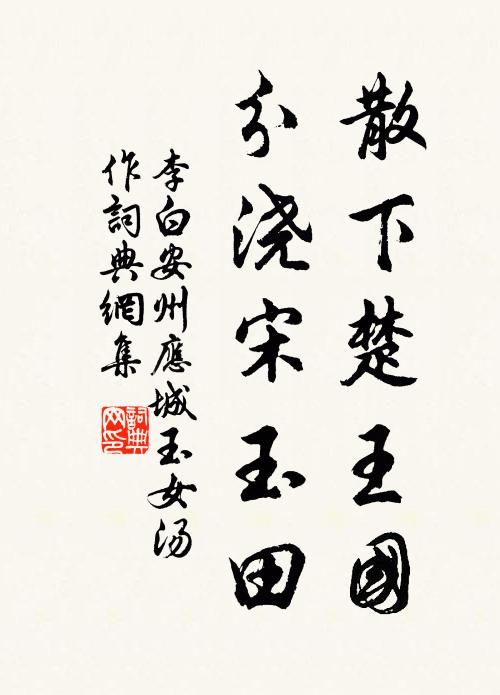 散下楚王國
分浇宋玉田
李白安州應城玉女汤
作詞典網集
詞典网印